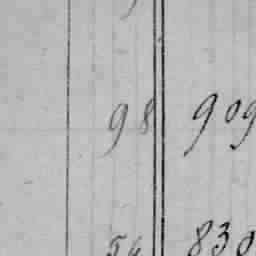 98 909
54 830